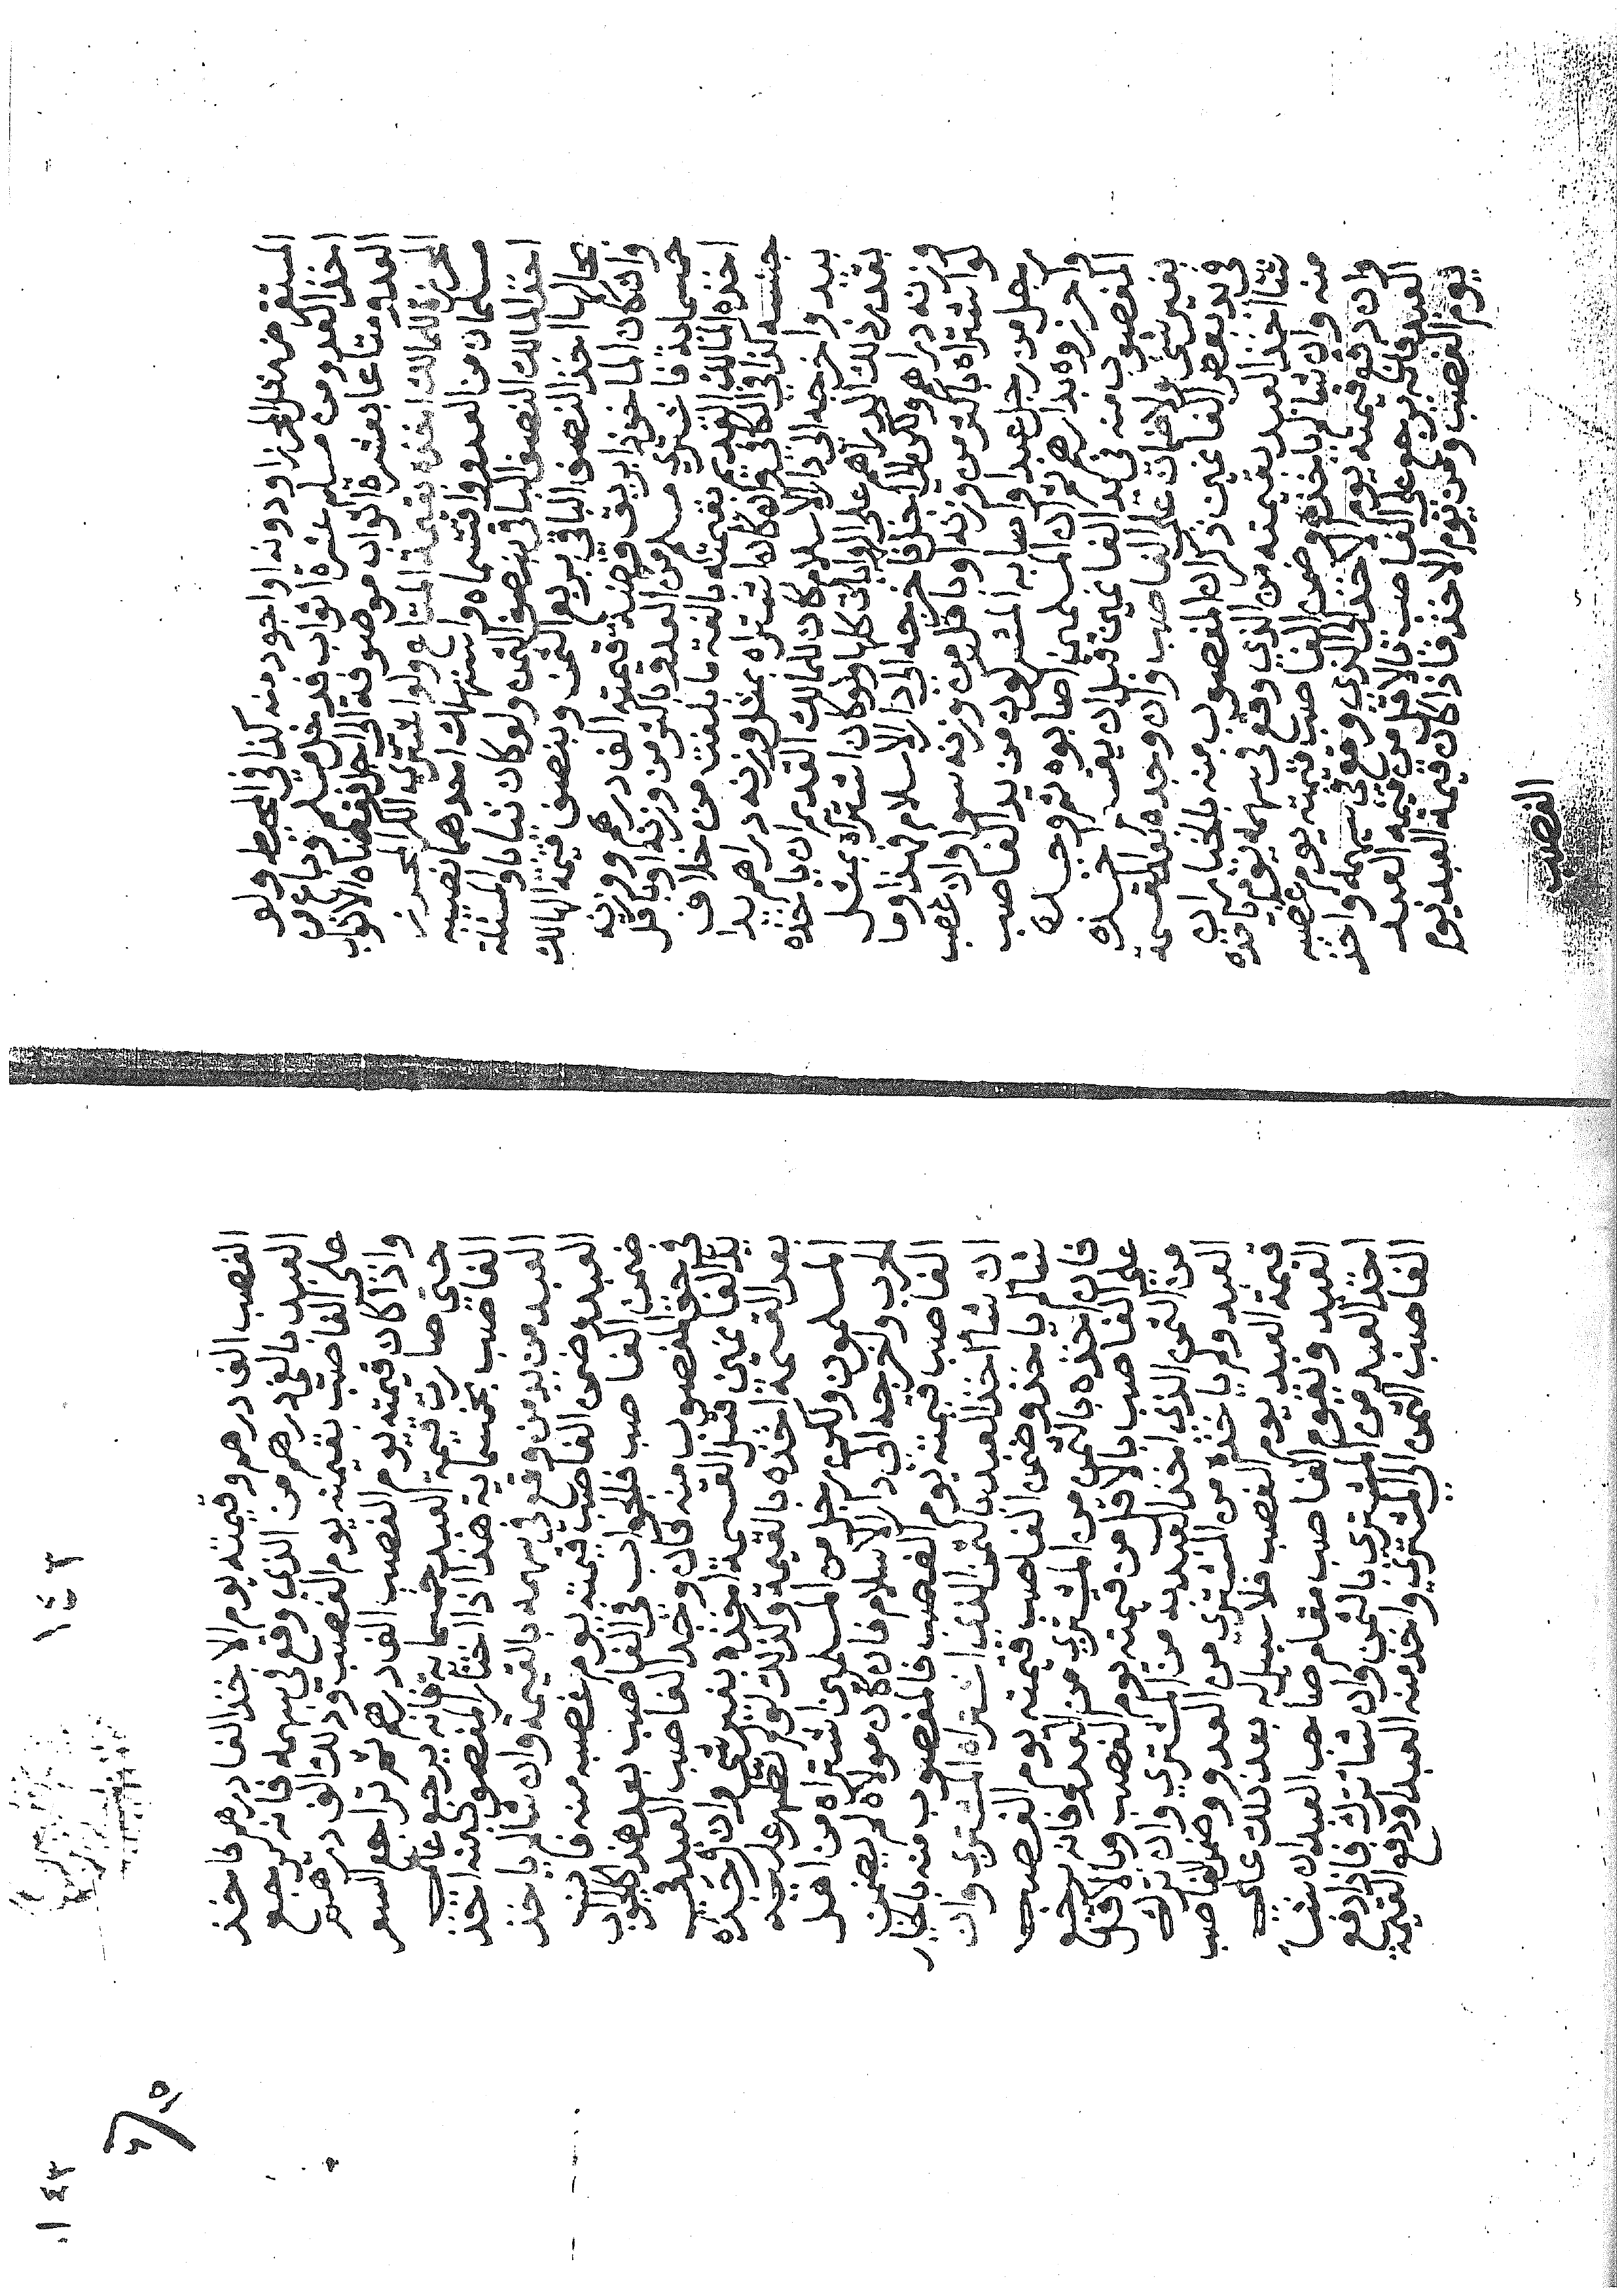 المستقرض مثل المحرز او دونه او اجود منه كذا في المحيط ولو
اخذ العدو من مسلم عشرة اثواب فدخل مسلم وباع من
العدو متاعا بعشرة اثواب موصوفة الى اجل فقضاه الاثواب
المحرزة للمالك اخذه بقيمة المتاع ولو اشترى الكر المحرز
مسلمان من العدو واقتسماه واستهلك احدهما نصيبه
اخذ المالك النصف الباقي بنصف الثمن ولو كان ثيابا والمسئلة
بحالها اخذ النصف الباقي بربع الثمن وبنصف قيمة الهالك
وان كان الماخوذ ابريق فضة قيمته الف درهم ووزنه
خمسماية فاشترى مسلم من العدو باكثر من وزنه او باقل
اخذه المالك القديم بقيمته بالغة ما بلغت من خلاف
جنسه كذا في الكافي ولو كان اشتراه بمثل وزنه دراهم يدا
بيد واخرجه الى دار الاسلام كان للمالك القديم ان ياخذه
بعدد ذلك الدراهم على الروايات كلها ولو كان اشتراه بمثل
وزنه دراهم ولكن الى اجل فاخرجه الى دار الاسلام فهذا وما
لو اشتراه باكثر من وزنه او باقل من وزنه سوا ولا غصب
رجل من رجل عبدا واصابه المشركون من يد الغاصب
واحرزوه بدارهم ثم ان المسلمين اصابوه ثم وجده
المغصوب منه في يد الغانمين قبل ان يقتسم اخذه
بغير شي ولا ضمان على الغاصب وان وجده بعد القسمة
في يد بعض الغانمين ذكر ان المغصوب منه بالخيار ان
شا اخذ العبد بقيمته من الذي وقع في سهمه يوم ياخذه
منه وان شا لم ياخذه وضمن الغاصب قيمته يوم غصبه
وان دفع قيمته يوم الاخذ الى الذي وقع في سهمه واخذ
العبد فانه يرجع على الغاصب بالاقل من قيمة العبد
يوم الغصب ومن يوم الاخذ فاذا كان قيمة العبد يوم
الغصب
١٤٣
الغصب الف درهم وقيمته يوم الاخذ الفا درهم فاخذ
العبد بالفي درهم من الذي وقع في سهمه فانه يرجع
على الغاصب بقيمته يوم الغصب وذلك الف درهم
واذا كان قيمته يوم الغصب الف درهم ثم تراجع السعر
حتى صارت قيمة العبد خمسماية فانه يرجع على
الغاصب بخمسماية هذا اذا اختار المغصوب منه اخذ
العبد من يد من وقع في سهمه بالقيمة وان شا لم ياخذ
العبد وضمن الغاصب قيمته يوم غصبه منه فان
ضمن الغاصب فالجواب في الغاصب بعد هذا كالجواب
في حق المغصوب منه فان وجد الغاصب العبد في
يد الغانمين قبل القسمة اخذه بغير شي وان وجده
بعد القسمة اخذه بالقيمة وكذلك لو لم يظهر عليه
المسلمون ولكن رجل من المسلمين اشتراه من اهل
الحرب واخرجه الى دار الاسلام فان كان مولاه لم يضمن
الغاصب قيمته يوم الغصب فالمغصوب منه بالخيار
ان شا اخذ العبد بالثمن الذي اشتراه المشتري وان
شا لم ياخذ وضمن الغاصب قيمته يوم الغصب
فان اخذه بالثمن من المشتري من العدو فانه يرجع
على الغاصب بالاقل من قيمته يوم الغصب وبالاقل
من الثمن الذي اخذ العبد به من المشتري وان ترك
العبد ولم ياخذه من المشتري من العدو وضمن الغاصب
قيمة العبد يوم الغصب فلا سبيل له بعد ذلك على
العبد ويقوم الغاصب مقام صاحب العبد ان شا
اخذ العبد من المشتري بالثمن وان شا ترك فاذا دفع
الغاصب الثمن الى المشتري واخذ منه العبد ودفع القيمة
١٤٣